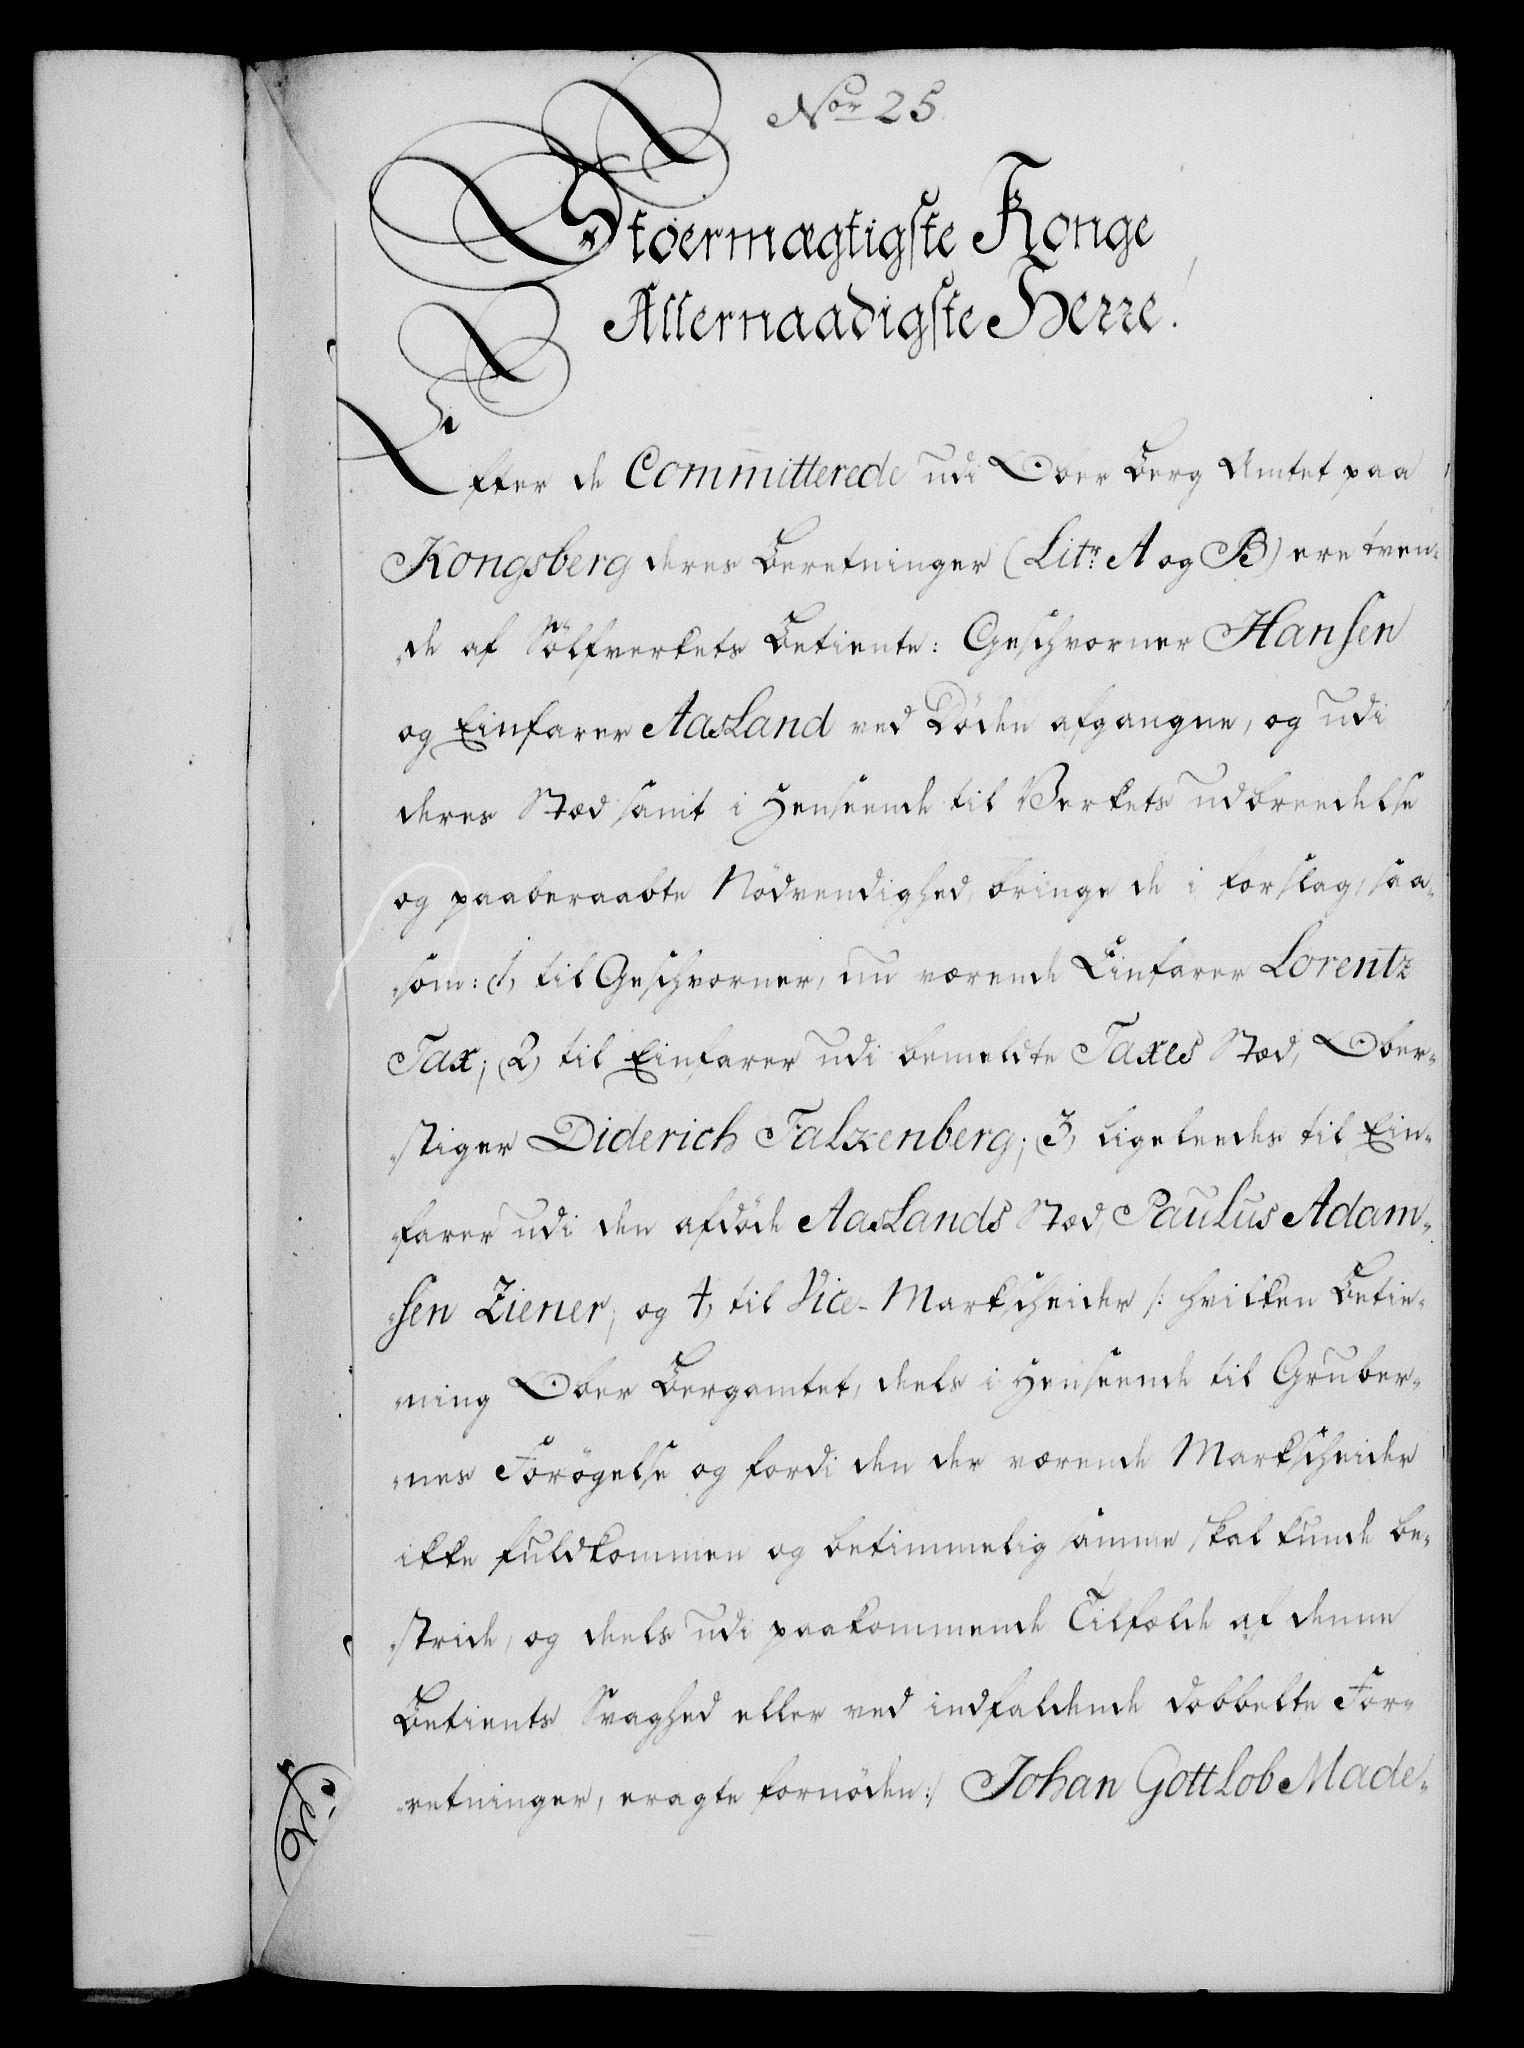 Nor 25.
Stoermægtigste Konge,
Allernaadigste Herre!
Efter de Committerede udi Ober Berg Amtet paa
Kongsberg deres Beretninger (Litr. A og B) ere tven-
de af Sölfverkets Betiente: Geschvorner Hansen
og Einfarer Aasland ved Döden afgangne, og udi
deres Stæd samt i Henseende til Verkets udbreedelse
og paaberaabte Nödvendighed, bringe de i forslag, saa-
som: (1, til Geschvorner, nu værende Einfarer Lorentz
Tax; (2, til Einfarer udi bemeldte Taxes Stæd, Ober-
stiger Diderich Falkenberg; (3, ligeleedes til Ein-
farer udi den afdöde Aaslands Stæd, Paulus Adam-
sen Ziener; og 4, til Vice-Markscheider /: hvilken Betie-
ning Ober Bergamtet, deels i Henseende til Gruber-
nes Forögelse og fordi den der værende Markscheider
ikke fuldkommen og betimmelig samme skal kunde be-
stride, og deels udi paakommende Tilfælde af denne
Betients Svaghed eller ved indfaldende dobbelte For-
retninger, eragte fornöden :/ Johan Gottlob Made-